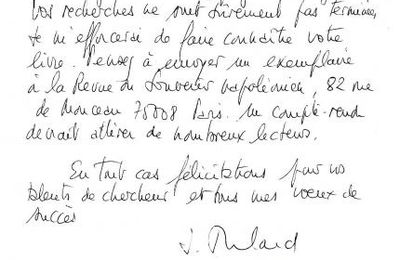 Vos recherches ne sont sûrement pas terminées,
Je m'efforcerai de faire connaître votre
livre. Pensez à envoyer un exemplaire
à la Revue du Souvenir napoléonien, 82 rue
de Monceau 75008 Paris. Un compte-rendu
devrait attirer de nombreux lecteurs.
En tout cas félicitations pour vos
talents de chercheur et tous mes voeux de
succès
J. Tulard